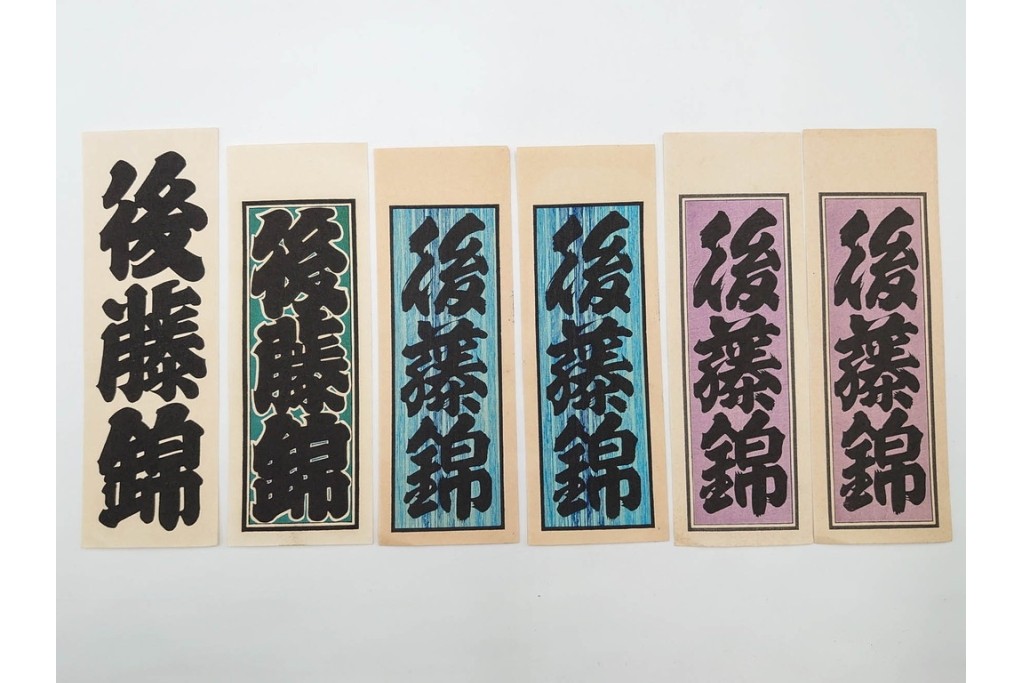 後藤錦
後藤錦
後藤錦
後藤錦
後藤錦
後藤錦